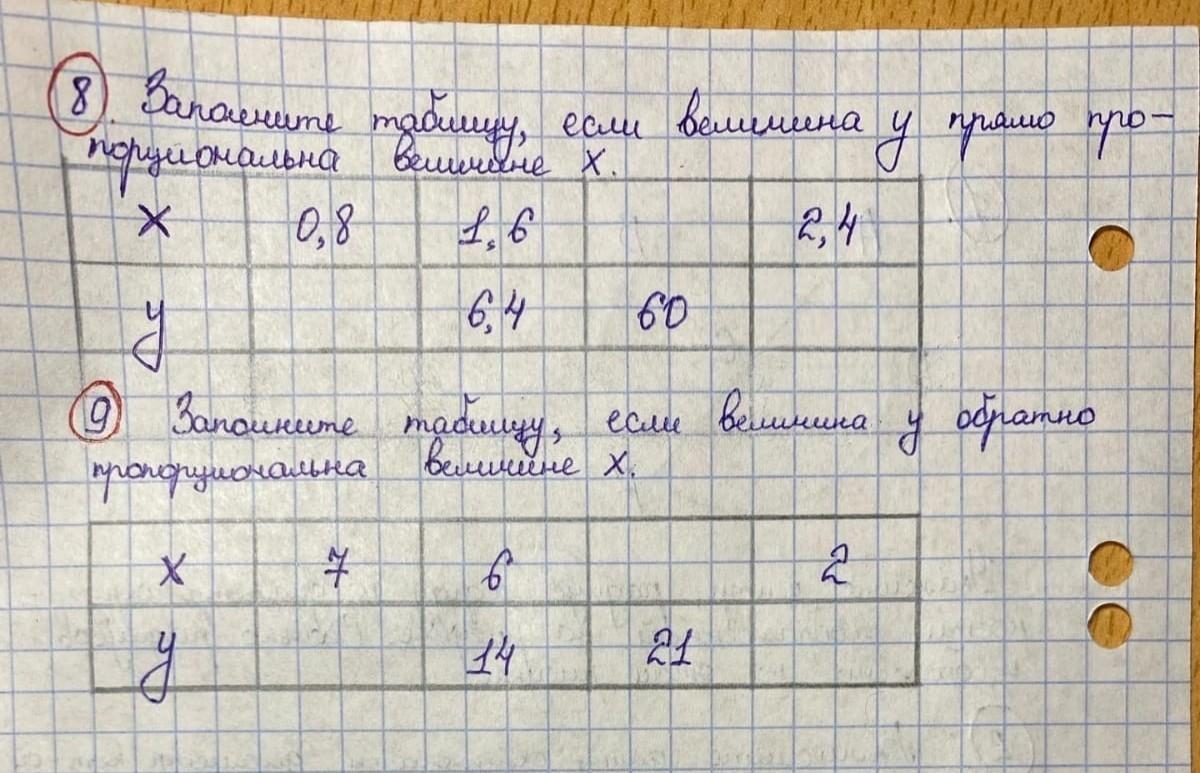 8. Заполните таблицу, если величина y прямо про-
порциональна величине x.
x 0,8 1,6 2,4
y 6,4 60
9 Заполните таблицу, если величина y обратно
пропорциональна величине x.
x 7 6 2
y 14 21